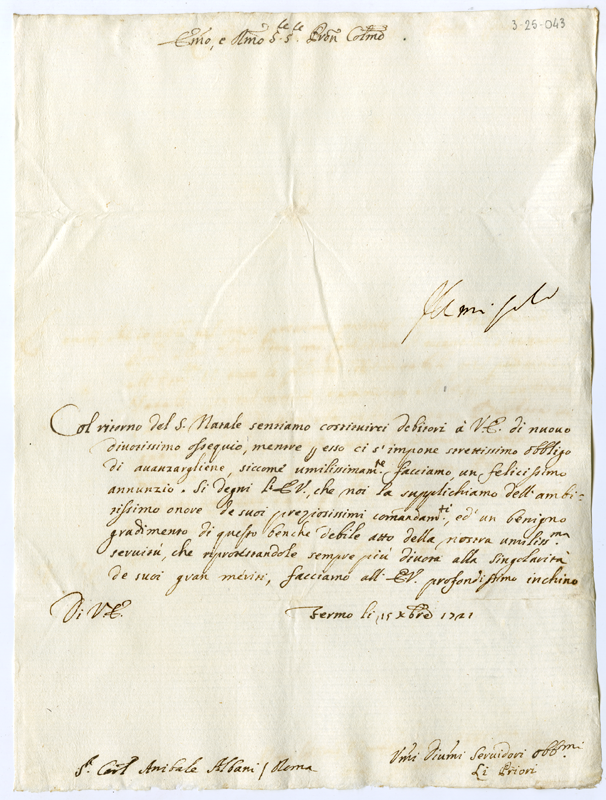 3-25-043
Emo, e Rmo S.r S.r Pron Colmo.
Col ritorno del S. Natale sentiamo costituirci debitori à V.E. di nuovo
divotissimo ossequio, mentre p esso ci s'impone strettissimo obbligo
di avanzargliene, siccome umilissimam.te facciamo, un felicissimo
annunzio. Si degni l'E.V., che noi la supplichiamo dell'ambi-
tissimo onore de suoi preziosissimi comandam.ti, ed' un benigno
gradimento di questo benche debile atto della nostra umiliss.ma
servitù, che riprotestandole sempre più divota alla singolarità
de suoi gran meriti, facciamo all'E.V. profondissimo inchino
Di V.E. Fermo li 15 Xbre 1721
Umi Divmi Servidori obb.mi
Li Priori
S.r Card Anibale Albani / Roma